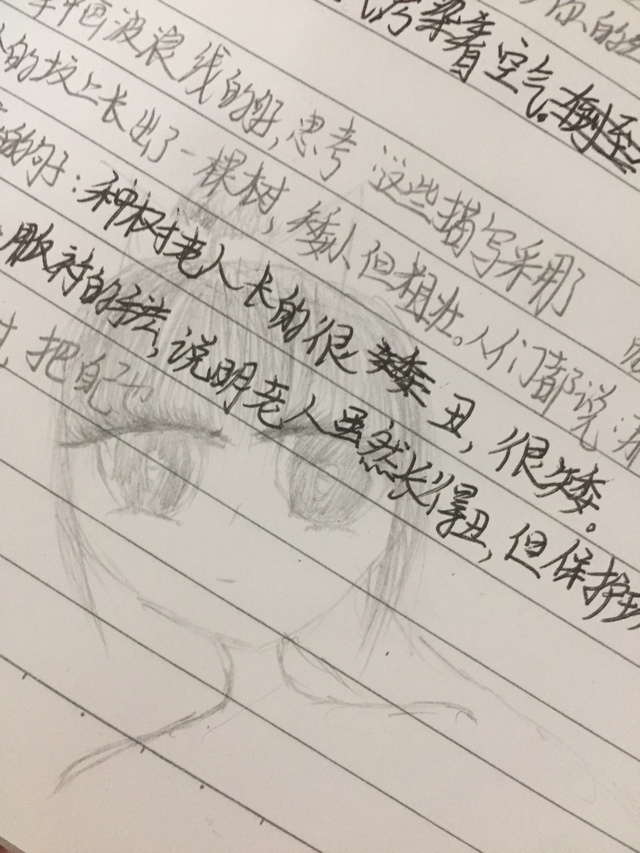 你的
污染着空气。
画波浪线的好,思考 这些描写采用了
的坟上长出了一棵树,矮小但粗壮。人们都说
句子:种树老人长的很丑,很矮。
服衬的手法,说明老人虽然长得丑,但保护
把自己